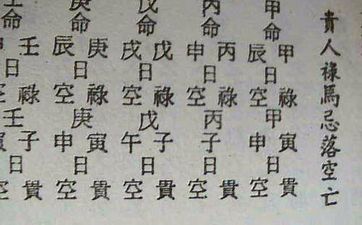 貴人祿馬忌落空亡
甲命甲辰日祿空甲寅日貴空
丙命丙申日祿空丙子日貴空
戊命戊戌日祿空戊子午日貴空
庚命庚辰日祿空庚寅申日貴空
壬命壬日祿空壬子寅日貴空